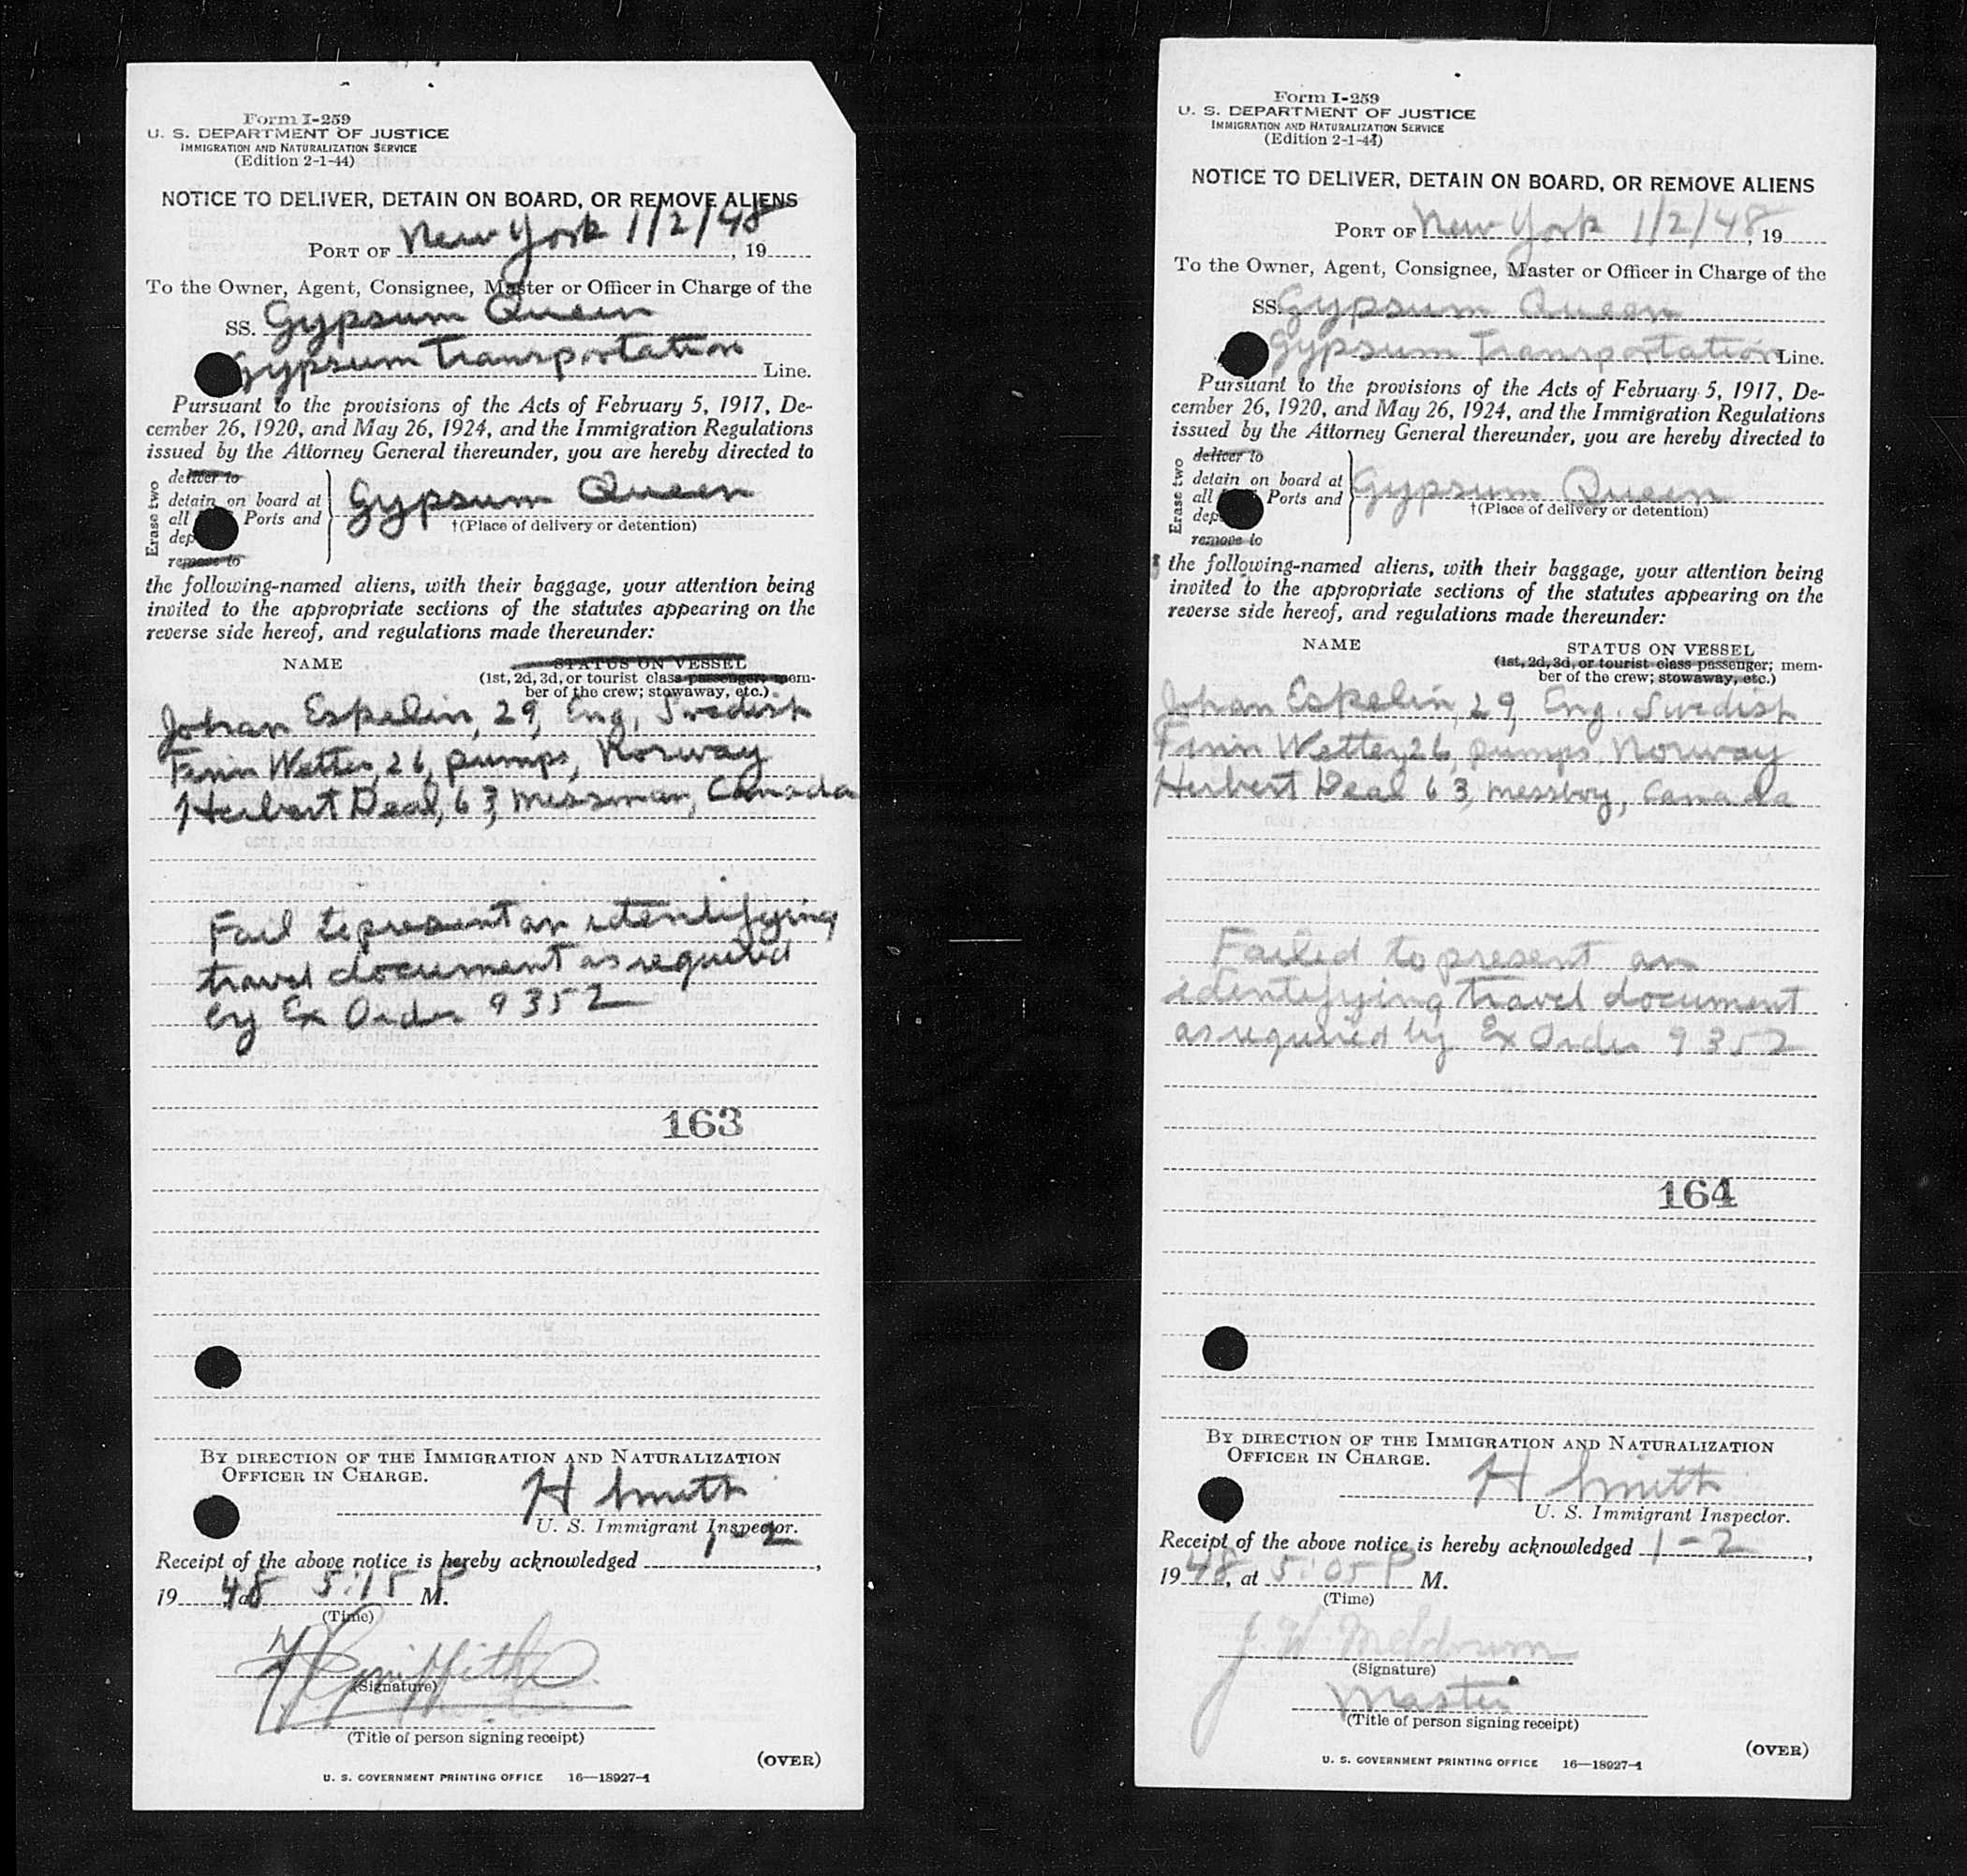 Form I-259
U. S. DEPARTMENT OF JUSTICE
IMMIGRATION AND NATURALIZATION SERVICE
(Edition 2-1-44)
NOTICE TO DELIVER, DETAIN ON BOARD, OR REMOVE ALIENS
PORT OF New York 1/2/48, 19
To the Owner, Agent, Consignee, Master or Officer in Charge of the
SS. Gypsum Queen
Gypsum Transportation Line.
Pursuant to the provisions of the Acts of February 5, 1917, De-
cember 26, 1920, and May 26, 1924, and the Immigration Regulations
issued by the Attorney General thereunder, you are hereby directed to
Erase two
deliver to
detain on board at
all Ports and
dep
remove to
Gypsum Queen
†(Place of delivery or detention)
the following-named aliens, with their baggage, your attention being
invited to the appropriate sections of the statutes appearing on the
reverse side hereof, and regulations made thereunder:
NAME STATUS ON VESSEL
(1st, 2d, 3d, or tourist class passenger; mem-
ber of the crew; stowaway, etc.)
Johan Eskelin, 29, Eng, Swedish
Finn Wetter, 26, pumps, Norway
Herbert Deal, 63, messman, Canada
Fail to present an identifying
travel document as required
by Ex Order 9352
163
BY DIRECTION OF THE IMMIGRATION AND NATURALIZATION
OFFICER IN CHARGE.
H Smith
U. S. Immigrant Inspector.
Receipt of the above notice is hereby acknowledged 1-2,
19 48 at 5:15 P M.
(Time)
Griffith
(Signature)
(Title of person signing receipt)
(OVER)
U. S. GOVERNMENT PRINTING OFFICE 16—18927-1
Form I-259
U. S. DEPARTMENT OF JUSTICE
IMMIGRATION AND NATURALIZATION SERVICE
(Edition 2-1-44)
NOTICE TO DELIVER, DETAIN ON BOARD, OR REMOVE ALIENS
PORT OF New York 1/2/48, 19
To the Owner, Agent, Consignee, Master or Officer in Charge of the
SS. Gypsum Queen
Gypsum Transportation Line.
Pursuant to the provisions of the Acts of February 5, 1917, De-
cember 26, 1920, and May 26, 1924, and the Immigration Regulations
issued by the Attorney General thereunder, you are hereby directed to
Erase two
deliver to
detain on board at
all Ports and
dep
remove to
Gypsum Queen
†(Place of delivery or detention)
the following-named aliens, with their baggage, your attention being
invited to the appropriate sections of the statutes appearing on the
reverse side hereof, and regulations made thereunder:
NAME STATUS ON VESSEL
(1st, 2d, 3d, or tourist class passenger; mem-
ber of the crew; stowaway, etc.)
Johan Eskelin, 29, Eng. Swedish
Finn Wetter, 26, pumps, Norway
Herbert Deal 63, messboy, Canada
Failed to present an
identifying travel document
as required by Ex Order 9352
164
BY DIRECTION OF THE IMMIGRATION AND NATURALIZATION
OFFICER IN CHARGE.
H Smith
U. S. Immigrant Inspector.
Receipt of the above notice is hereby acknowledged 1-2,
19 48, at 5:05 P M.
(Time)
J. W.
(Signature)
Master
(Title of person signing receipt)
(OVER)
U. S. GOVERNMENT PRINTING OFFICE 16—18927-1